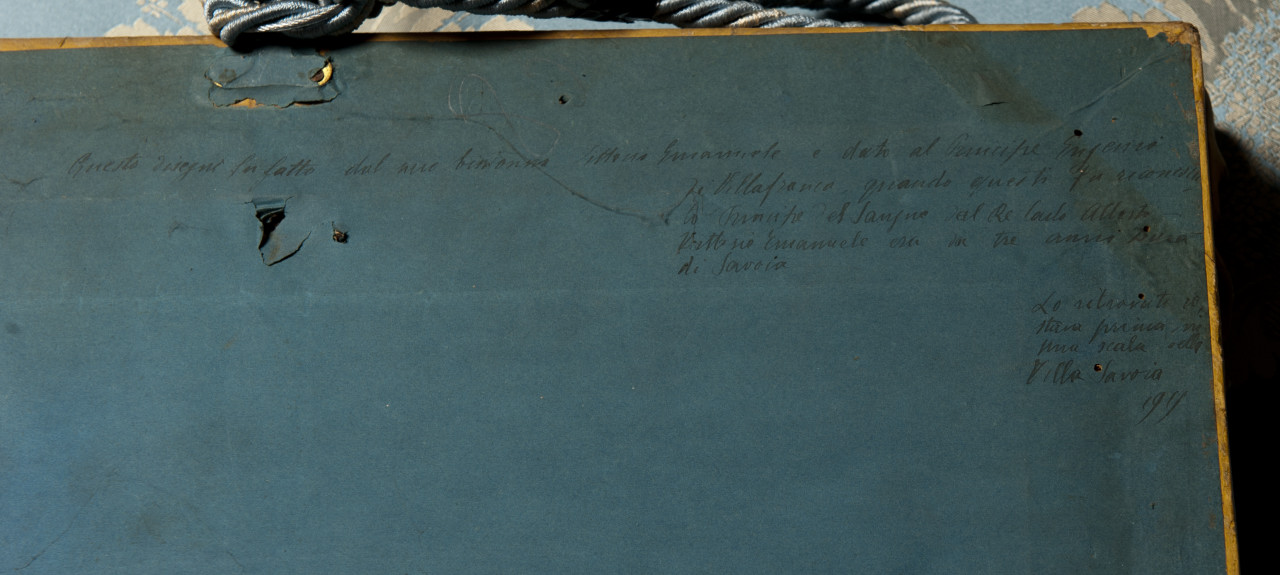 Questo disegno fu fatto dal mio bisnonno Vittorio Emanuele e dato al Principe Eugenio
di Villafranca quando questi fu riconosciuto
Principe del Sangue dal Re Carlo Alberto
Vittorio Emanuele era in tre anni
di Savoia
Lo
stava prima in
una scala della
Villa Savoia